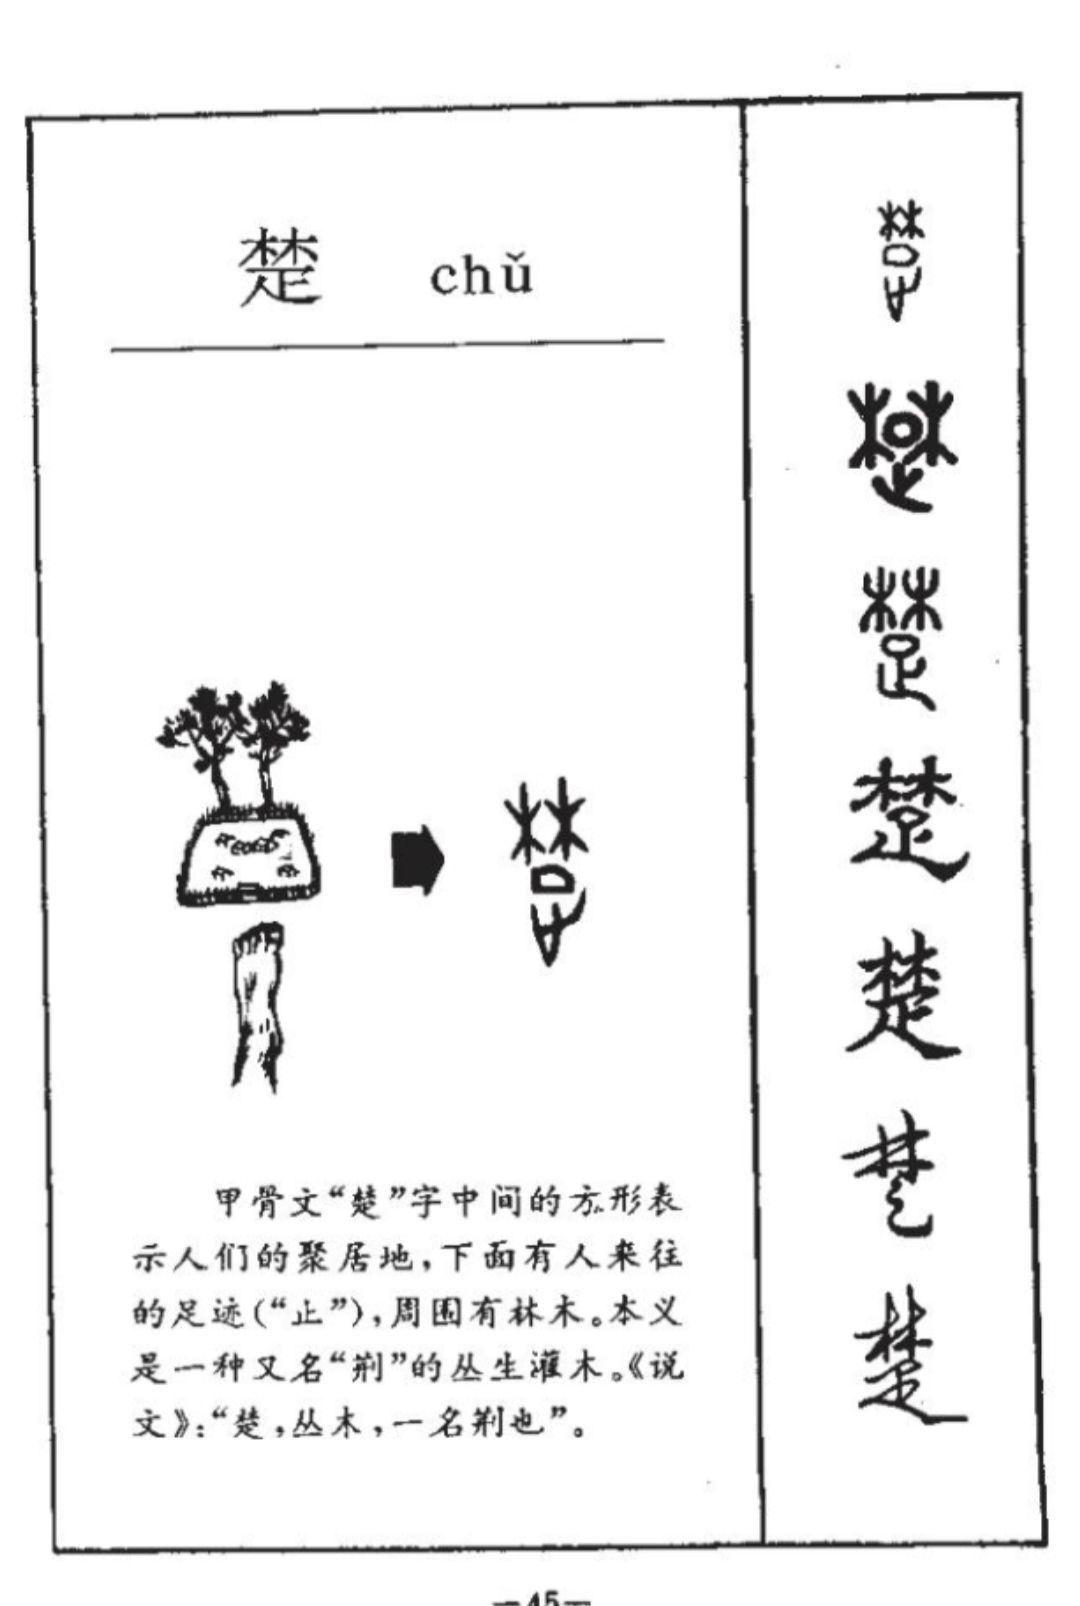 楚 chǔ
甲骨文“楚”字中间的方形表
示人们的聚居地，下面有人来往
的足迹(“止”)，周围有林木。本义
是一种又名“荆”的丛生灌木。《说
文》：“楚，丛木，一名荆也”。
楚
楚
楚
楚
楚
楚
楚
—45—